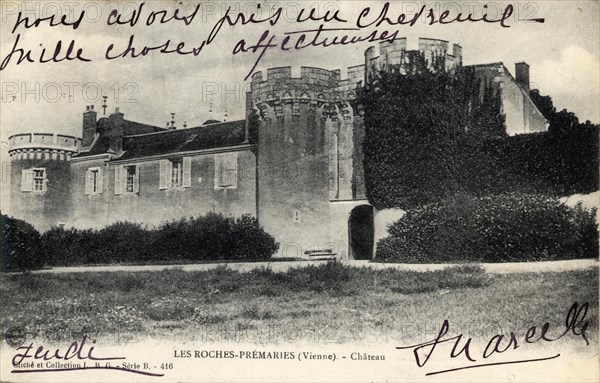 nous avons pris un chevreuil,
mille choses affectueuses
LES ROCHES-PRÉMARIES (Vienne). - Château
Jeudi
Marcelle
Cliché et Collection L. B. G. - Série B. - 416